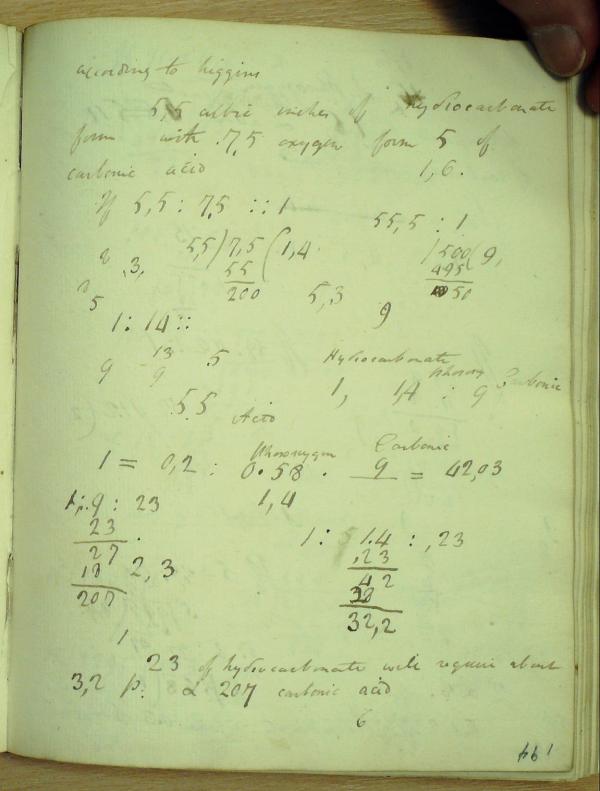 according to higgins
5,5 cubic inches of hydrocarbonate
form with .7,5 oxygen form 5 of
carbonic acid 1,6.
If 5,5 : 7,5 :: 1 55,5 : 1
5,5)7,5(1,4 500(9,
.3, 55 495
200 5,3 50
5 9
1 : 14 ::
13
9 9 5 Hydrocarbonate
phosoxy Carbonic
1, 1,4 : 9
55 Acid
phosoxygen Carbonic
1 = 0,2 : 0.58 . 9 = 42,03
1 : .9 : 23 1,4
23 1 : 1.4 : ,23
27 ,23
18 2,3 42
207 32,2
1
23 of hydrocarbonate will require about
3,2 p. & 207 carbonic acid
6
194